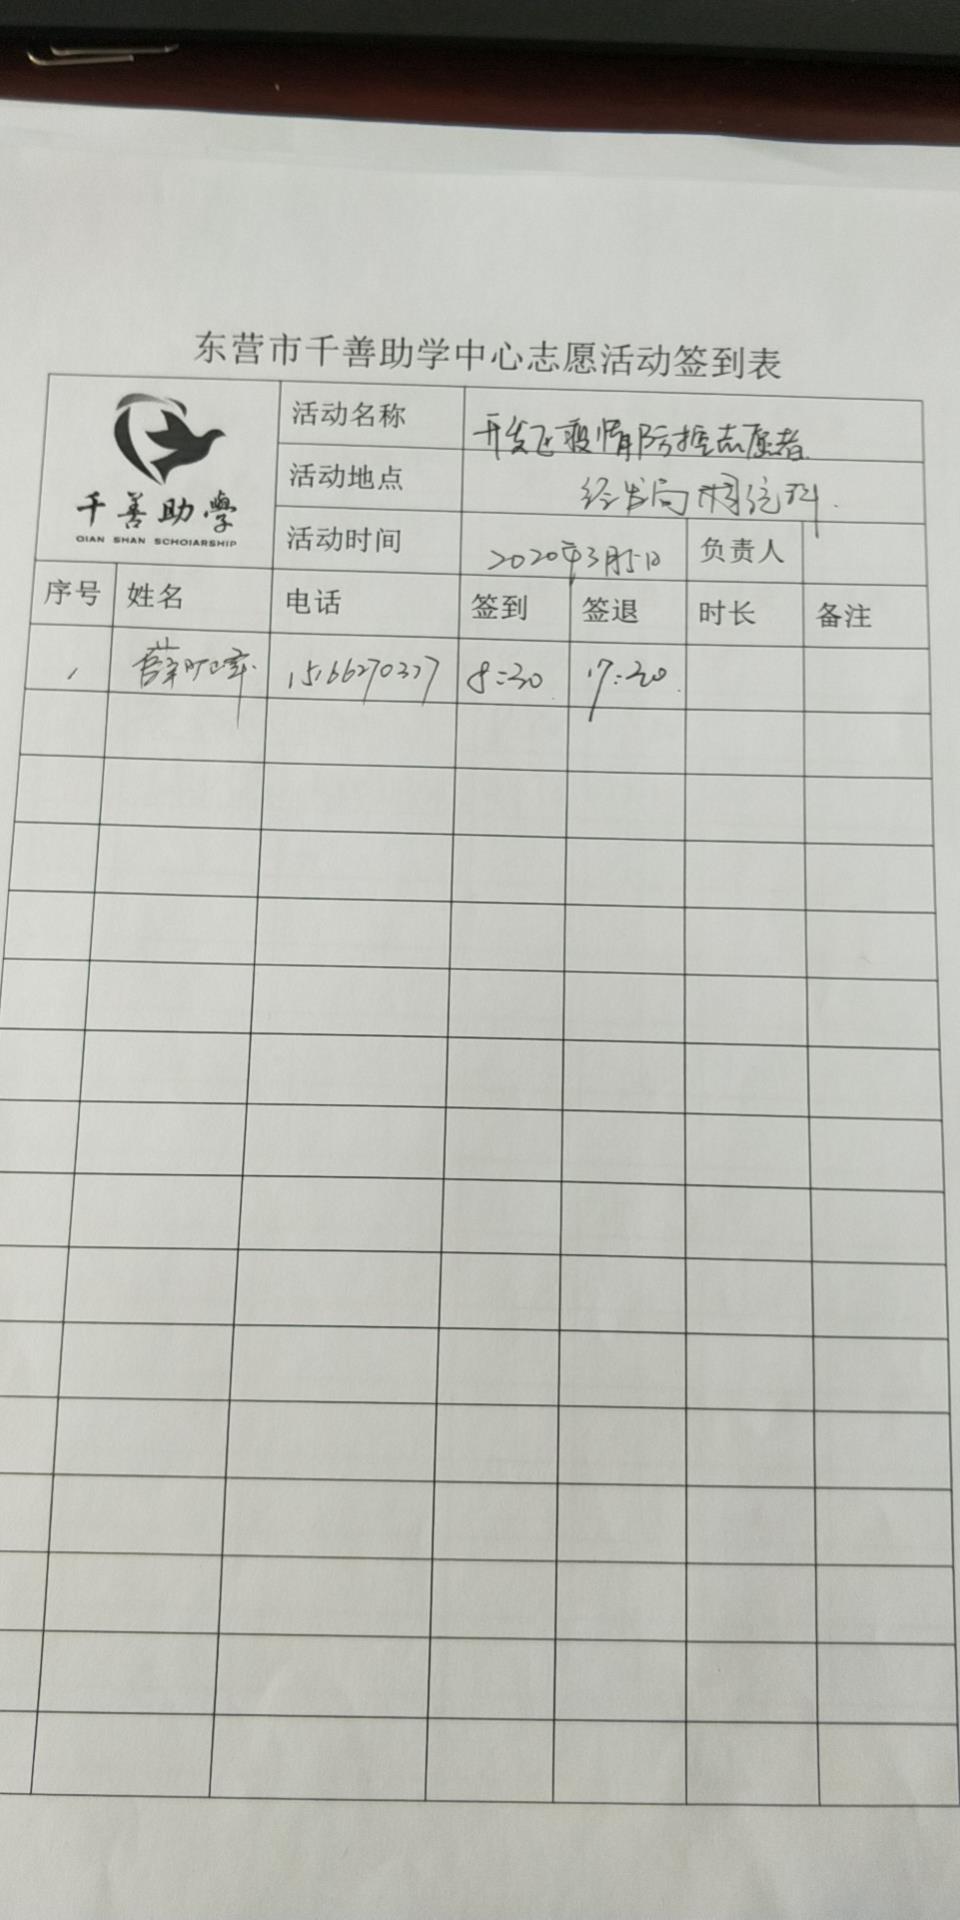 东营市千善助学中心志愿活动签到表
千善助學
QIAN SHAN SCHOIARSHIP
活动名称 开发区疫情防控志愿者
活动地点 经发局
活动时间 2020年3月5日 负责人
序号 姓名 电话 签到 签退 时长 备注
1 薛 15166270377 8:30 17:30